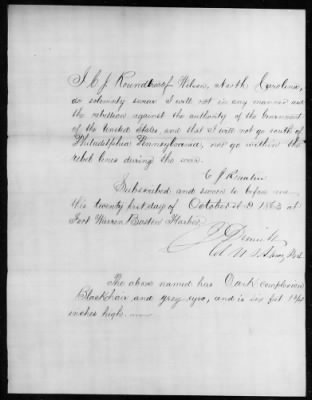 I, C. J. Roundtree of Wilson, North Carolina,
do solemnly swear I will not in any manner aid
the rebellion against the authority of the Government
of the United States, and that I will not go south of
Philadelphia Pennsylvania, nor go within the
rebel lines during the war.
C J
Subscribed and sworn to before me
this twenty first day of October A D 1863 at
Fort Warren Boston Harbor.
Col U. S. Army
The above named has Dark complexion
Black hair and grey eyes, and is six feet
inches high.